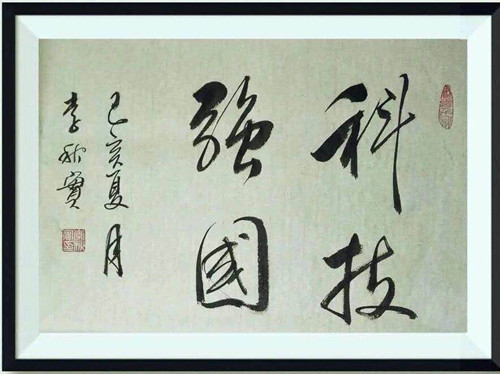 科技
強國
己亥夏月
李秋實